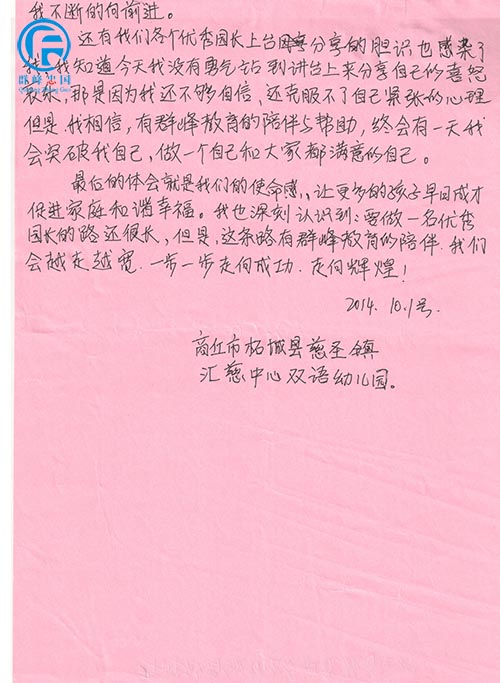 我不断的向前进。
还有我们各个优秀园长上台分享的胆识也感染了
我,我知道今天我没有勇气站到讲台上来分享自己的喜怒
哀乐,那是因为我还不够自信,还克服不了自己紧张的心理
但是.我相信,有群峰教育的陪伴与帮助,终会有一天我
会突破我自己,做一个自己和大家都满意的自己。
最后的体会就是我们的使命感,让更多的孩子早日成才
促进家庭和谐幸福。我也深刻认识到:要做一名优秀
园长的路还很长,但是,这条路有群峰教育的陪伴.我们
会越走越宽.一步一步走向成功.走向辉煌!
2014.10.1号.
商丘市柘城县慈圣镇
汇慈中心双语幼儿园。